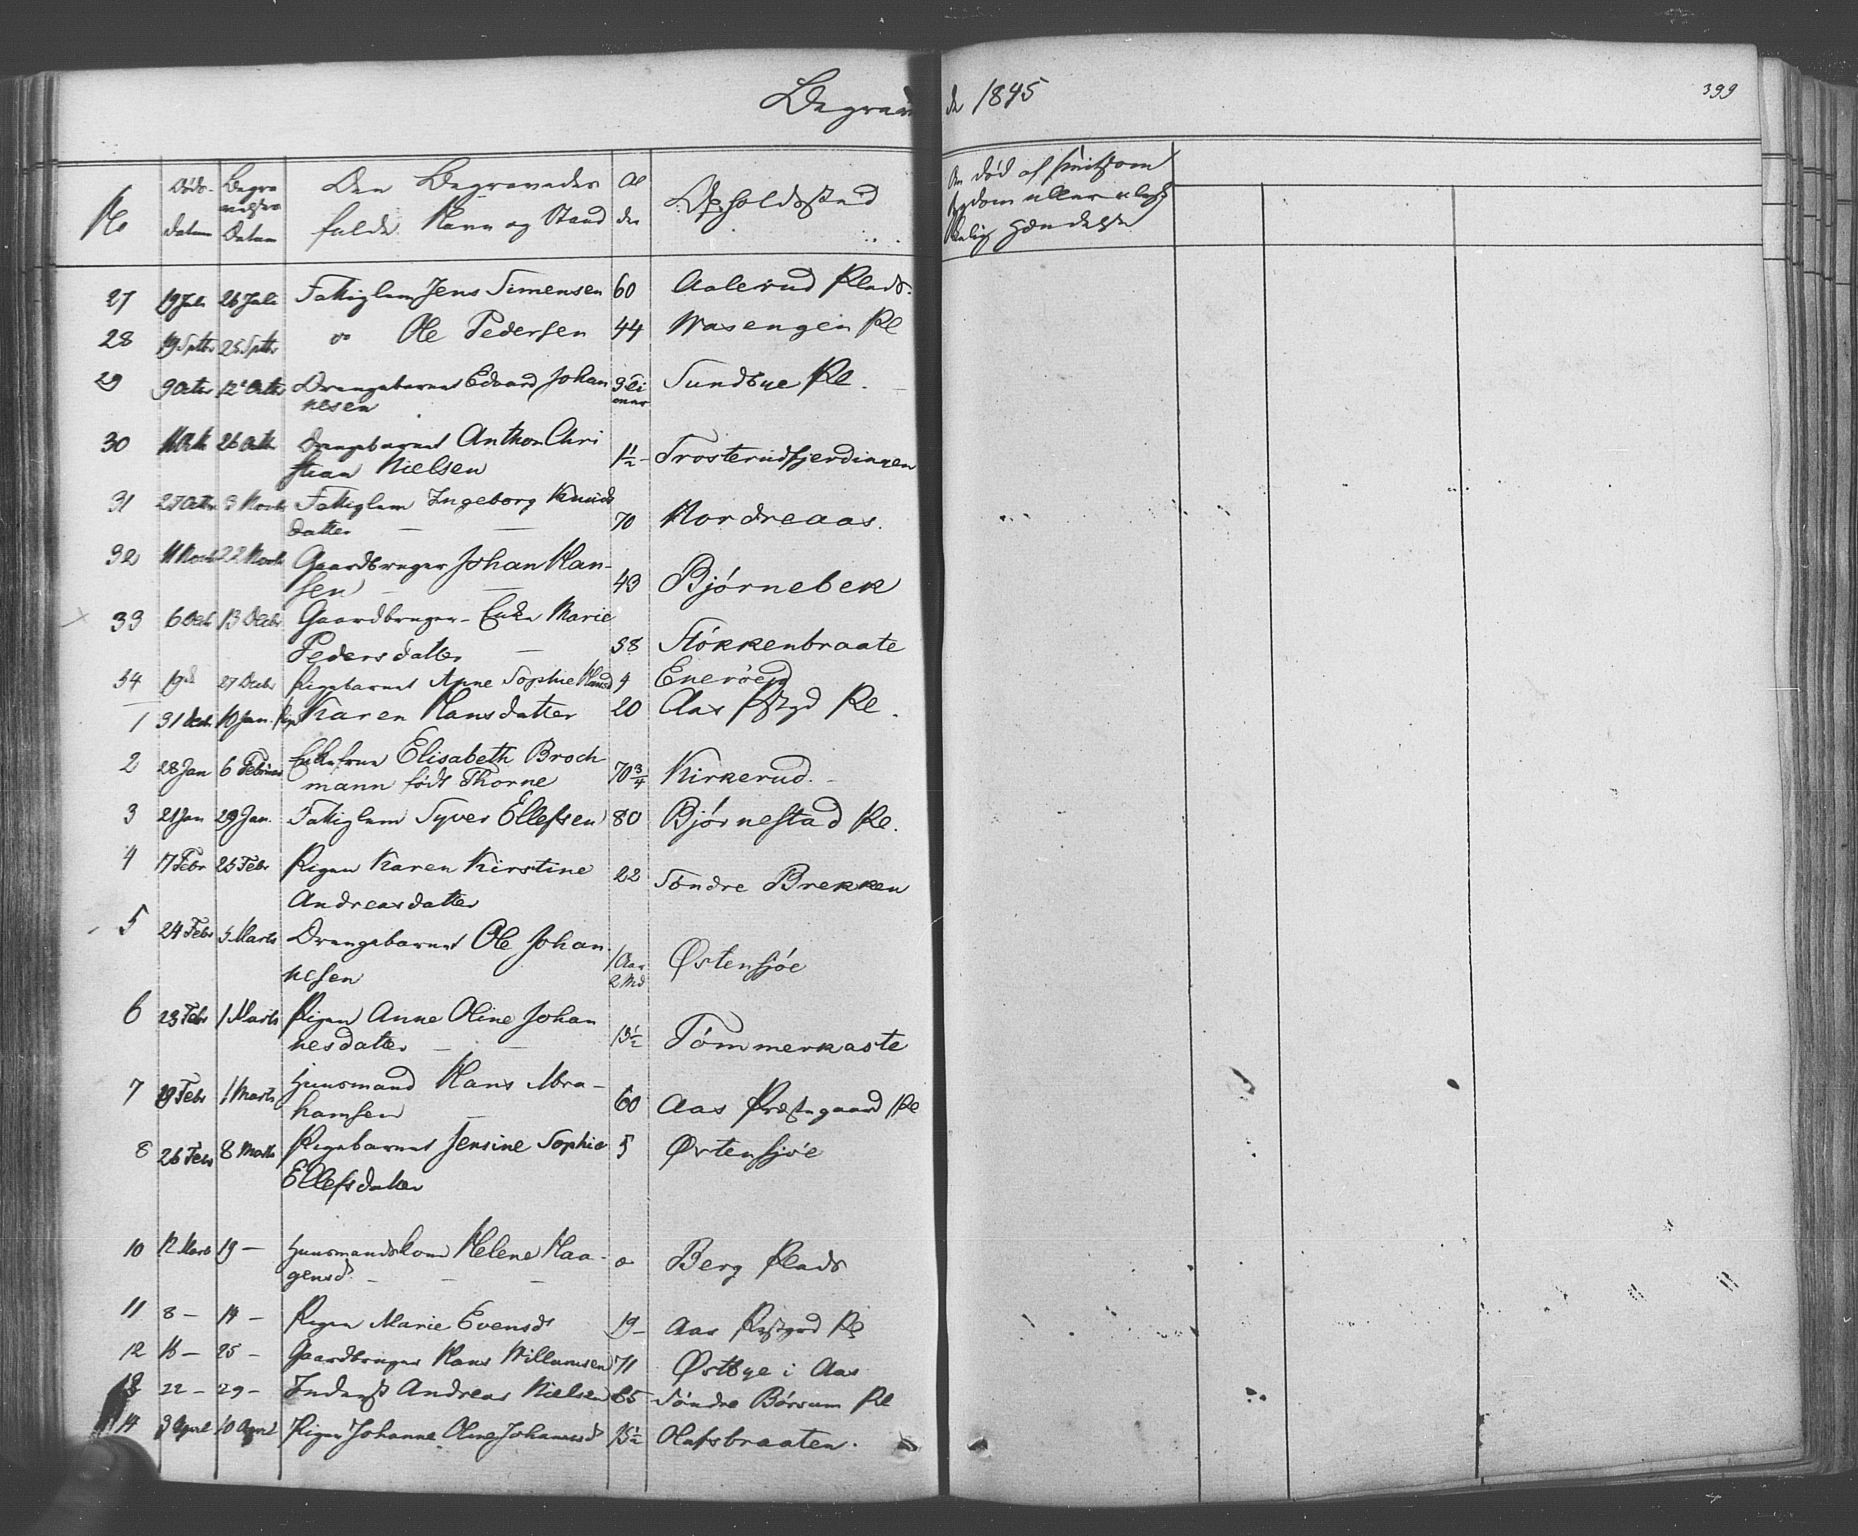 Begravede 1845
399
No
Døds-
datum
Begra
velses
Datum
Den Begravedes
fulde Navn og Stand
Al
der
Opholdssted
Om død af smitsom
Sygdom eller ulyk
kelig Hændelse
27 19 Juli 26 Juli Fattiglem Jens Simensen 60 Aalerud Plads.
28 19 Septbr 25 Septbr do Ole Pedersen 44 Wasengen Pl
29 9 Octbr 12 Octbr Drengebarnet Edvard Johan
nesen 3 Ti
mer Sundbye Pl.
30 26 Octb Drengebarnet Anthon Chri
stian Nielsen 1½ Frosterudfjerdingen
31 27 Octbr 3 Novbr Fattiglem Ingeborg Knuds
datter 70 Nordreaas.
32 11 Novbr 22 Novbr Gaardbruger Johan Han-
sen 43 Bjørnebek
33 6 Decbr 13 Decbr Gaardbruger-Enke Marie
Pedersdatter 58 Stökkenbraate
34 27 Decbr Pigebarnet Anne Sophie Hansd 4
1 31 Decbr 10 Jan. Pige Karen Hansdatter 20 Aas Pstgd Pl.
2 28 Jan 6 Februar Enkefrue Elisabeth Broch
mann født Thorne 70¾ Kirkerud.
3 21 Jan 29 Jan. Fattiglem Syver Ellefsen 80 Bjørnestad Pl.
4 17 Febr 25 Febr Pigen Karen Kirstine
Andreasdatter 22 Søndre Brekken
5 24 Febr 5 Marts Drengebarnet Ole Johan
nesen 1 Aar
2 Md Østensjøe
6 23 Febr 1 Marts Pigen Anne Oline Johan
nesdatter 13½ Tømmerkaste
7 19 Febr 1 Marts Huusmand Hans Abra-
hamsen 60 Aas Præstegaard Pl
8 26 Febr 8 Marts Pigebarnet Jensine Sophie
Ellefsdatter 5 Østensjøe
10 12 Marts 19 — Huusmandskone Helene Haa-
gensd. Berg Plads
11 8 — 14 — Pigen Marie Evensdr 19 — Aas Pstgrd Pl
12 25 — Gaardbruger Hans Willumsen 71 Østbye i Aas
13 22 — 29 — Inderst Andreas Nielsen 65 Søndre Börsum Pl
14 3 April 10 April Pigen Johanne Oline Johannesd 15½ Olafsbraaten.